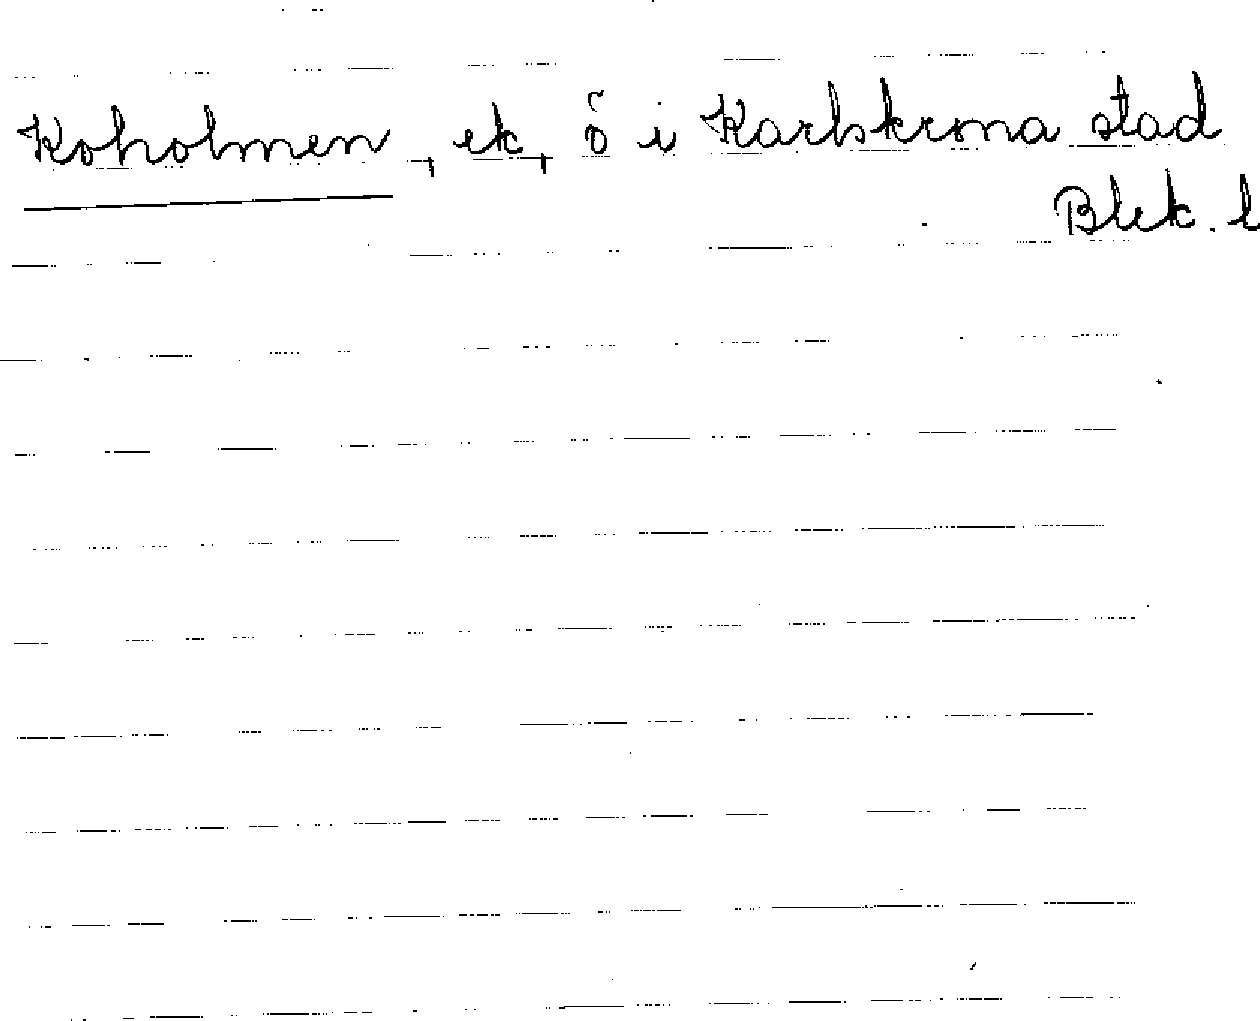 Koholmen, ek, ö i Karlskrona stad
Blek. l